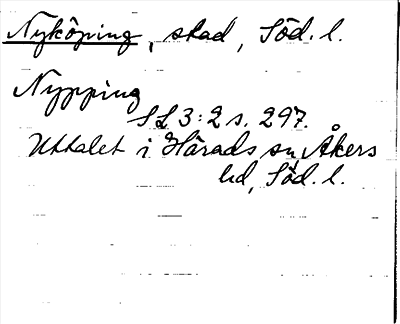 Nyköping, stad, Söd. l.
Nypping
SL 3:2 s. 297.
Uttalet i Härads sn, Åkers
hd, Söd. l.